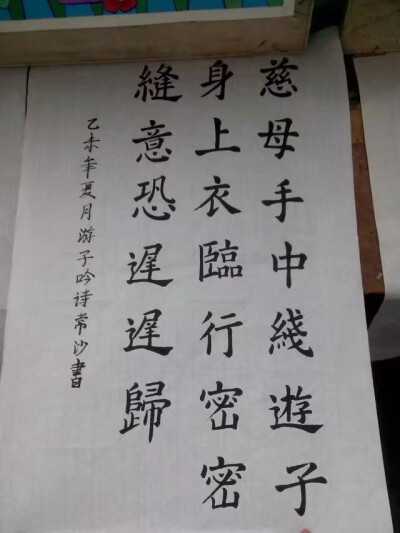 慈母手中綫遊子
身上衣臨行密密
縫意恐遲遲歸
乙未年夏月游子吟诗常沙書